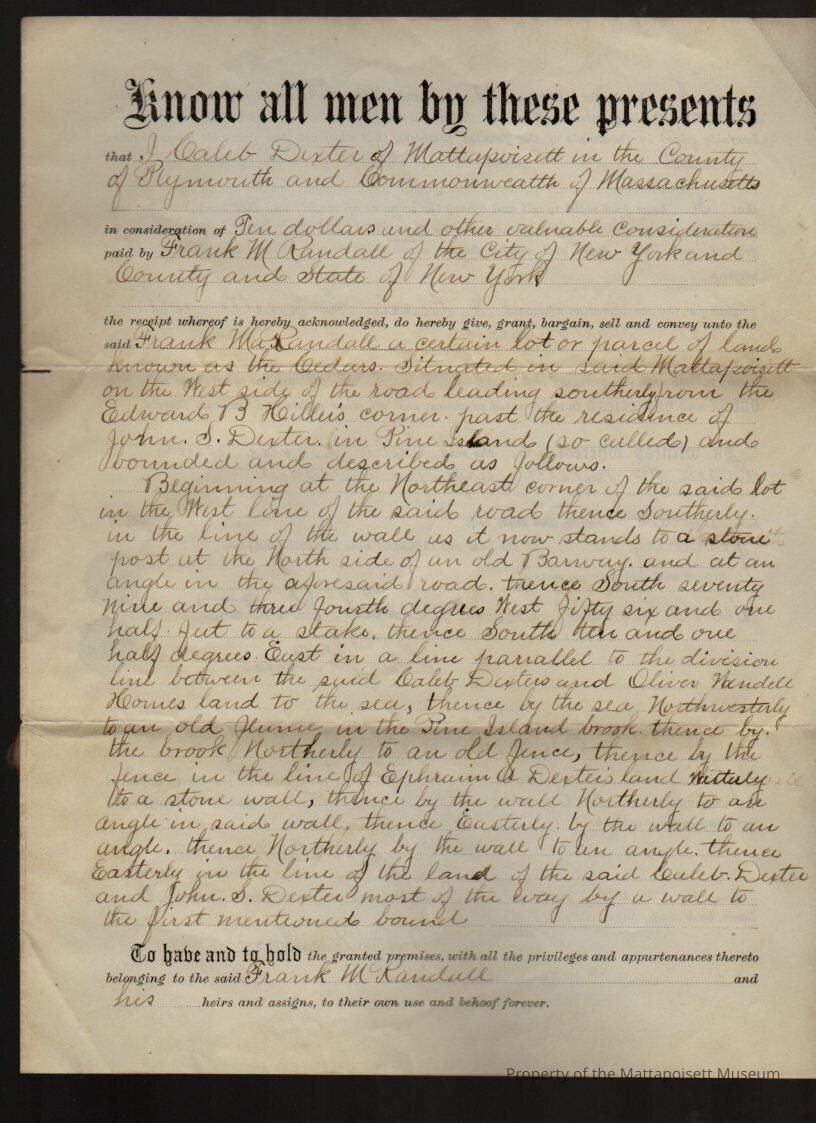 Know all men by these presents
that I Caleb Dexter of Mattapoisett in the County
of Plymouth and Commonwealth of Massachusetts
in consideration of Ten dollars and other valuable consideration
paid by Frank M Randall of the City of New York and
County and State of New York
the receipt whereof is hereby acknowledged, do hereby give, grant, bargain, sell and convey unto the
said Frank M. Randall a certain lot or parcel of land
known as the Cedars. Situated in said Mattapoisett
on the West side of the road leading southerly from the
Edward B Hiller's corner. past the residence of
John. S. Dexter. in Pine Island (so called) and
bounded and described as follows.
Beginning at the Northeast corner of the said lot
in the West line of the said road thence Southerly.
in the line of the wall as it now stands to a stone
post at the North side of an old Barway. and at an
angle in the aforesaid road. thence South seventy
nine and three fourth degrees West fifty six and one
half. feet to a stake, thence South ten and one
half degrees. East in a line parrallel to the division
line between the said Caleb Dexters and Oliver Wendell
Homes land to the sea, thence by the sea Northwesterly
to an old flume in the Pine Island brook. thence by.
the brook Northerly to an old fence, thence by the
fence in the line of Ephraim A Dexter's land Westerly
to a stone wall, thence by the wall Northerly to an
angle in said wall, thence Easterly. by the wall to an
angle. thence Northerly by the wall to an angle. thence
Easterly in the line of the land of the said Caleb. Dexter
and John. S. Dexter most of the way by a wall to
the first mentioned bound
To have and to hold the granted premises, with all the privileges and appurtenances thereto
belonging to the said Frank M Randall and
his heirs and assigns, to their own use and behoof forever.
Property of the Mattapoisett Museum